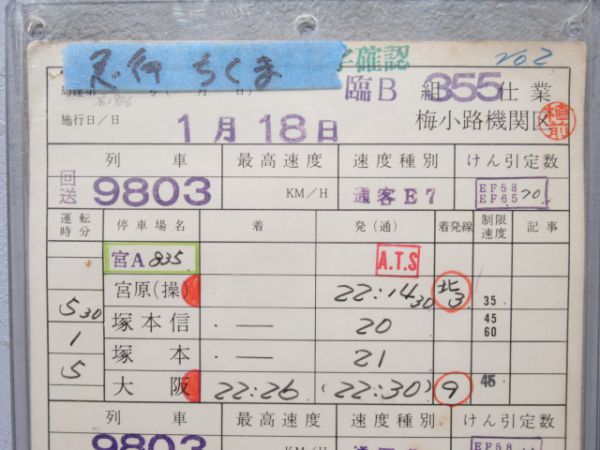 急行 ちくま
確認
No2
臨B 組 655 仕業
施行日/日 1月18日 梅小路機関区
列車 最高速度 速度種別 けん引定数
回送 9803 KM/H 通客E7 EF58 EF65 70
運転時分 停車場名 着 発(通) 着発線 制限速度 記事
宮A 835 A.T.S
宮原(操) 22:14 30 北3 35
5 30 塚本信 . — 20 45 60
1 塚本 . — 21
5 大阪 22:26 (22:30) 9 45
列車 最高速度 速度種別 けん引定数
9803 KM/H EF58